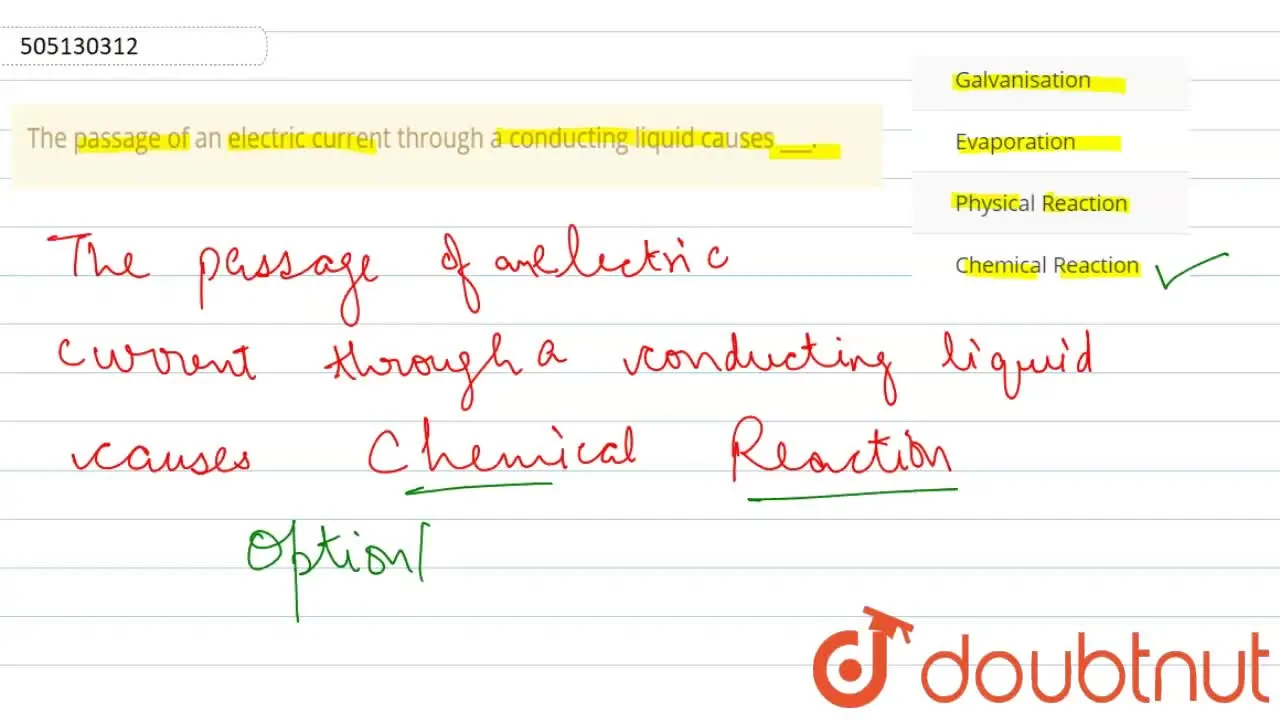 505130312
The passage of an electric current through a conducting liquid causes ___.
Galvanisation
Evaporation
Physical Reaction
Chemical Reaction
The passage of an electric
current through a conducting liquid
causes Chemical Reaction
Option
doubtnut